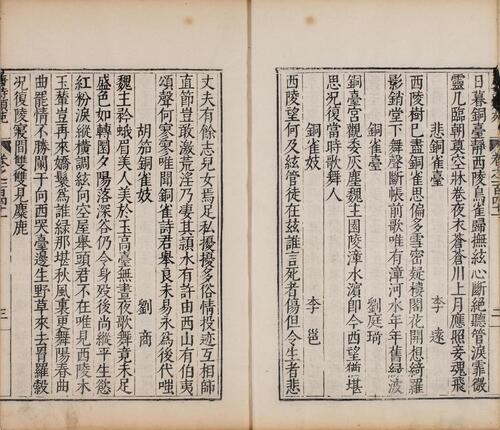 日暮銅臺靜西陵鳥雀歸撫絃心斷絕聽管淚霏微
靈几臨朝奠空牀卷夜衣蒼蒼川上月應照妾魂飛
悲銅雀臺　李遠
西陵樹已盡銅雀思偏多雪密疑樓閣花開想綺羅
影銷堂下舞聲斷帳前歌唯有漳河水年年舊綠波
銅雀臺　劉庭琦
銅臺宮觀委灰塵魏主園陵漳水濱即今西望猶堪
思況復當時歌舞人
銅雀妓　李邕
西陵望何及絃管徒在茲誰言死者傷但令生者悲
丈夫有餘志兒女焉足私擾擾多俗情投迹互相師
直節豈敢激荒淫乃凄其潁水有許由西山有伯夷
頌聲何寂寂唯聞銅雀詩君舉良未易永爲後代嗤
胡笳銅雀妓　劉商
魏主矜蛾眉美人美於玉高臺無晝夜歌舞竟未足
盛色如轉圜夕陽落深谷仍令身歿後尚縱平生慾
紅粉淚縱橫調絃向空屋舉頭君不在唯見西陵木
玉輦豈再來嬌鬟爲誰綠那堪秋風裏更舞陽春曲
曲罷情不勝闌干向西哭臺邊生野草來去罥羅縠
況復陵寢間雙雙見麋鹿